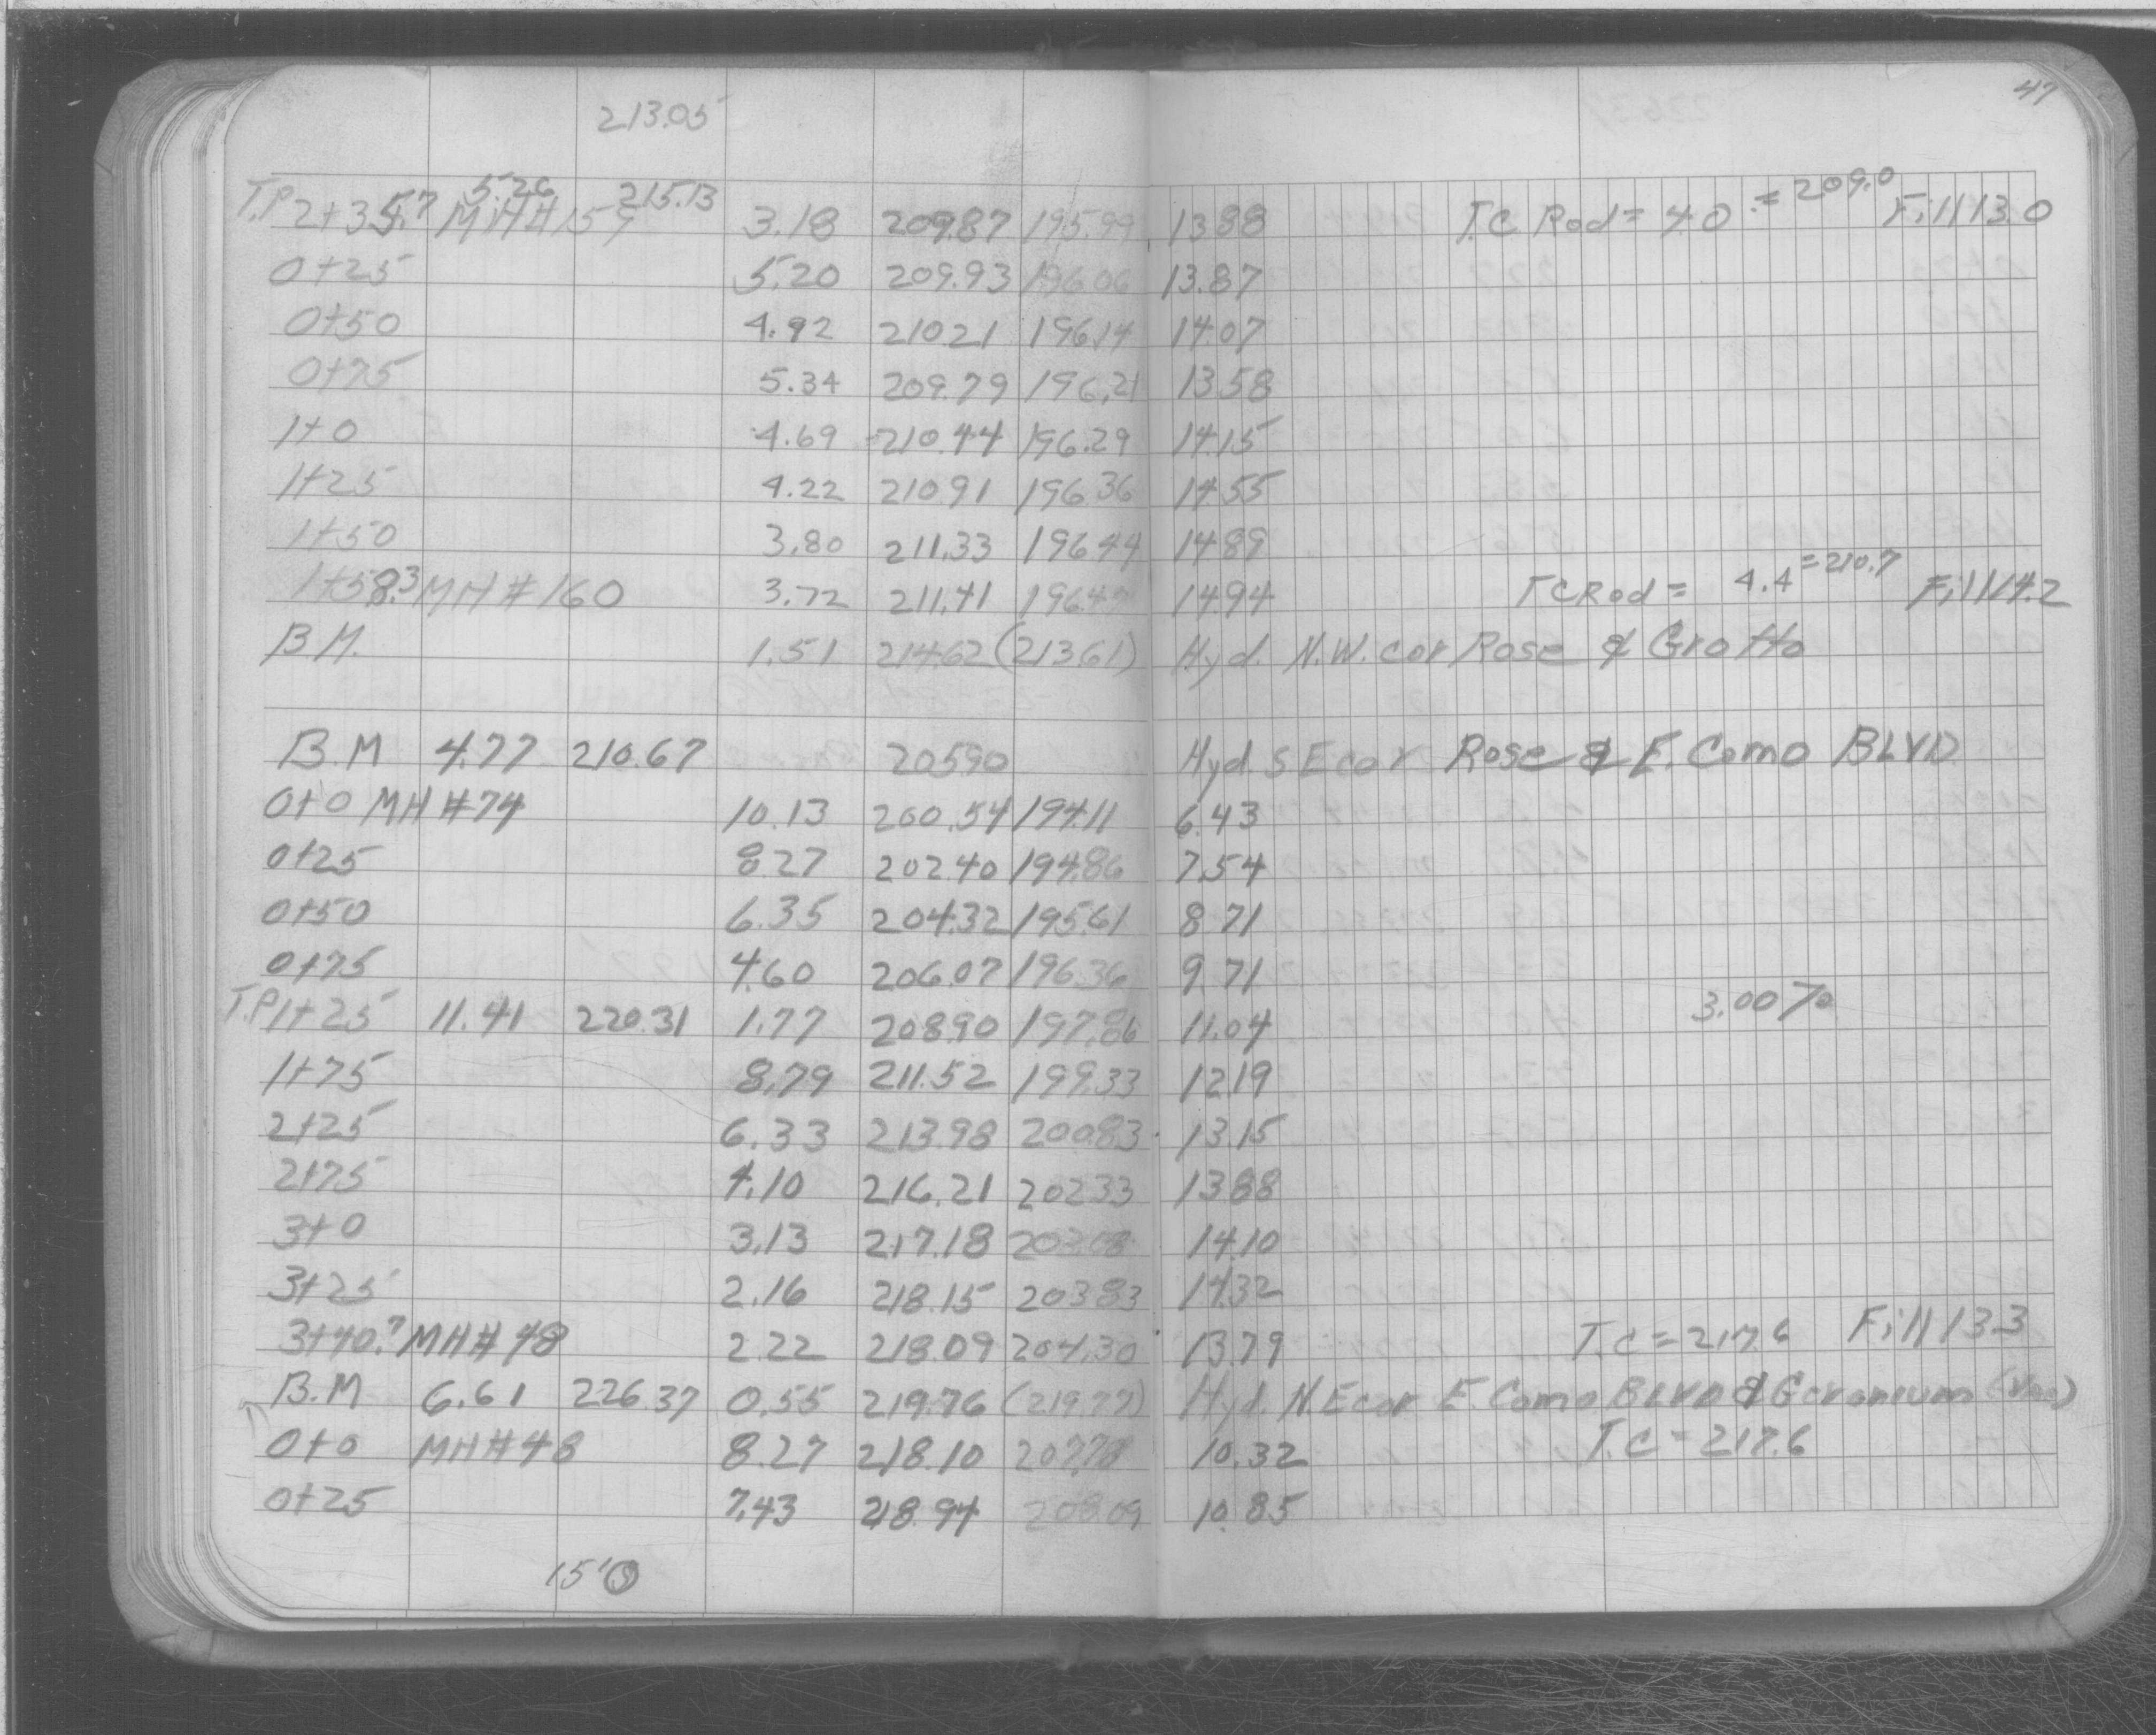 47
213.05
T.P 2+35.7 MH#159 5.26 215.13 3.18 209.87 195.99 13.88 T.C Rod = 4.0 = 209.0 Fill 13.0
0+25 5.20 209.93 196.06 13.87
0+50 4.92 210.21 196.14 14.07
0+75 5.34 209.79 196.21 13.58
1+0 4.69 210.44 196.29 14.15
1+25 4.22 210.91 196.36 14.55
1+50 3.80 211.33 196.44 14.89
1+58.3 MH #160 3.72 211.41 196.47 14.94 T C Rod = 4.4 = 210.7 Fill 14.2
B M. 1.51 214.62 (213.61) Hyd. N.W. cor Rose & Grotto
B.M 4.77 210.67 205.90 Hyd. S E cor Rose & E. Como BLVD
0+0 MH #74 10.13 200.54 194.11 6.43
0+25 8.27 202.40 194.86 7.54
0+50 6.35 204.32 195.61 8.71
0+75 4.60 206.07 196.36 9.71
T.P 1+25 11.41 220.31 1.77 208.90 197.86 11.04 3.00%
1+75 8.79 211.52 199.33 12.19
2+25 6.33 213.98 200.83 13.15
2+75 4.10 216.21 202.33 13.88
3+0 3.13 217.18 203.08 14.10
3+25 2.16 218.15 203.83 14.32
3+40.7 MH# 48 2.22 218.09 204.30 13.79 T.C = 217.6 Fill 13.3
B.M 6.61 226.37 0.55 219.76 (219.77) Hyd. N.E cor E. Como BLVD & Geranium
0+0 MH#48 8.27 218.10 207.78 10.32 T.C = 217.6
0+25 7.43 218.94 208.09 10.85
15'